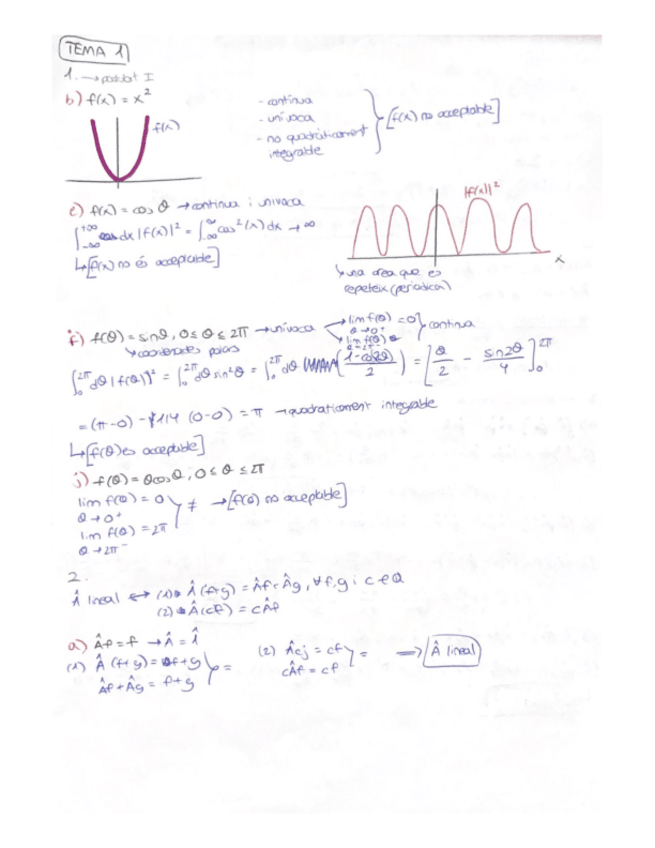 TEMA 1
1. → postulat I
b) f(x) = x²
f(x)
- contínua
- unívoca
- no quadràticament
integrable
[f(x) no acceptable]
e) f(x) = cos θ → contínua i unívoca
∫₋∞⁺∞ dx |f(x)|² = ∫₋∞^∞ cos²(x) dx → ∞
↳ [f(x) no és acceptable]
|f(x)|²
x
↳ una area que es
repeteix (periòdica)
f) f(θ) = sinθ, 0 ≤ θ ≤ 2π → unívoca
lim f(θ) = 0
θ → 0⁺
lim f(θ)
θ → 2π⁻
contínua
↳ coordenades polars
∫₀²π dθ |f(θ)|² = ∫₀²π dθ sin²θ = ∫₀²π dθ (1 - cos2θ / 2) = [θ/2 - sin2θ/4]₀²π
= (π - 0) - 1/4 (0 - 0) = π → quadràticament integrable
↳ [f(θ) és acceptable]
j) f(θ) = θcosθ, 0 ≤ θ ≤ 2π
lim f(θ) = 0
θ → 0⁺
≠ → [f(θ) no acceptable]
lim f(θ) = 2π
θ → 2π⁻
2.
Â lineal ↔ (1) Â(f+g) = Âf + Âg, ∀ f,g i c ∈
(2) Â(cf) = cÂf
a) Âf = f → Â = 1̂
(1) Â(f+g) = f+g
Âf + Âg = f+g
=
(2) Âcf = cf
cÂf = cf
=
⟹ Â lineal